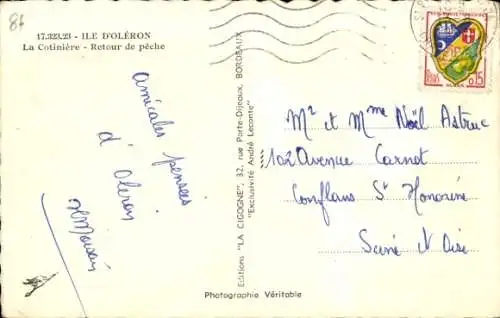 84
17.323.23 - ILE D'OLÉRON
La Cotinière - Retour de pêche
Amicales pensées
d'Oléron
Editions "LA CIGOGNE", 32, rue Porte-Dijeaux, BORDEAUX
"Exclusivité André Leconte"
0,15
Mr et Mme Noël Astruc
102 Avenue Carnot
Conflans Ste Honorine
Seine et Oise
Photographie Véritable